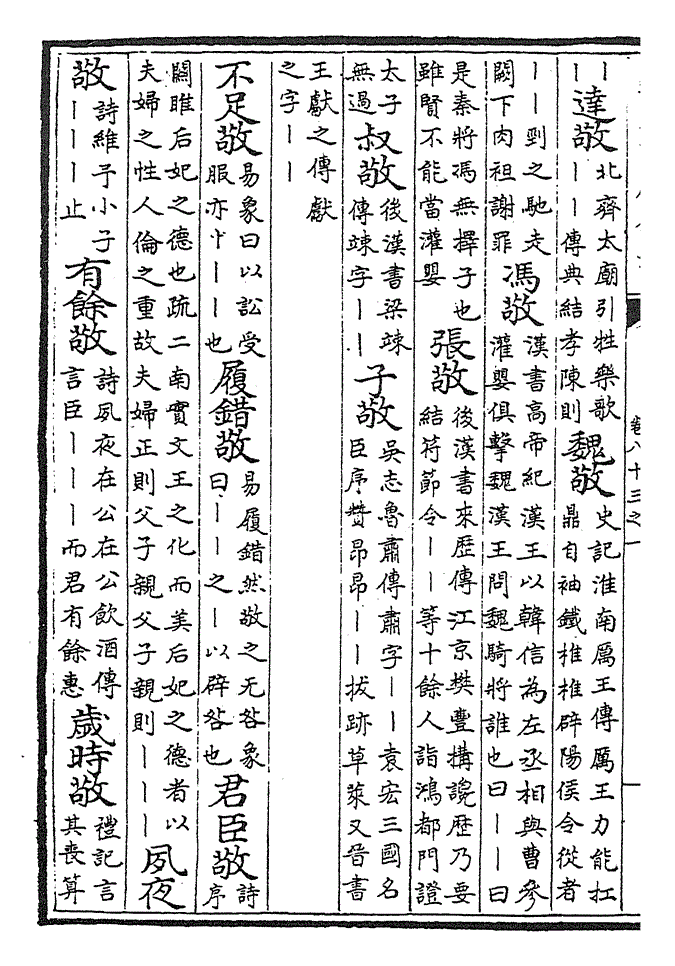 ｜｜達敬北齊太廟引牲樂歌｜｜傳典結孝陳則魏敬史記淮南厲王傳厲王力能扛鼎自袖鐵椎椎辟陽侯令從者
｜｜剄之馳走闕下肉袒謝罪馮敬漢書高帝紀漢王以韓信為左丞相與曹參灌嬰俱擊魏漢王問魏騎將誰也曰｜｜曰
是秦將馮無擇子也雖賢不能當灌嬰張敬後漢書來歷傳江京樊豐搆讒歷乃要結符節令｜｜等十餘人詣鴻都門證
太子無過叔敬後漢書梁竦傳竦字｜｜子敬吳志魯肅傳肅字｜｜袁宏三國名臣序贊昂昂｜｜拔跡草萊又晉書
王獻之傳獻之字｜｜
不足敬易象曰以訟受服亦｜｜｜也履錯敬易履錯然敬之无咎象曰｜｜之｜以辟咎也君臣敬詩序
關雎后妃之德也疏二南實文王之化而美后妃之德者以夫婦之性人倫之重故夫婦正則父子親父子親則｜｜｜夙夜
敬詩維予小子｜｜｜止有餘敬詩夙夜在公在公飲酒傳言臣｜｜｜而君有餘惠歲時敬禮記言其喪算
卷八十三之一